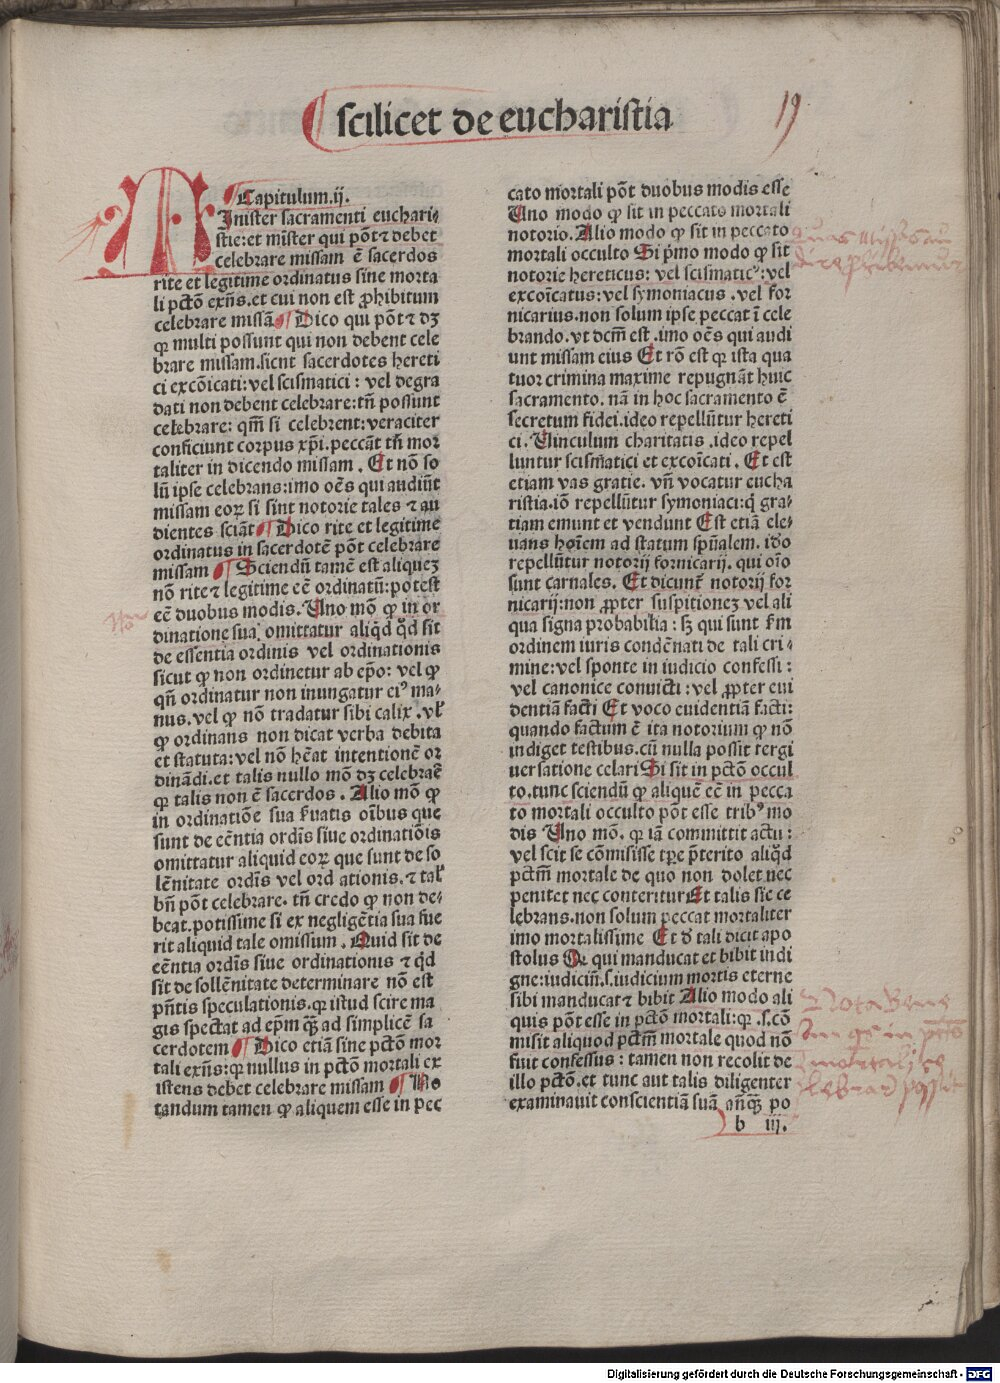 scilicet de eucharistia
19
Capitulum.ij.
Inister sacramenti euchari-
stie:et mīster qui pōt ⁊ debet
celebrare missam ē sacerdos
rite et legitime ordinatus sine morta
li pctō exñs.et cui non est ꝓhibitum
celebrare missā Dico qui pōt ⁊ dꝫ
qꝛ multi possunt qui non debent cele
brare missam.sicut sacerdotes hereti
ci excōicati:vel scismatici: vel degra
dati non debent celebrare:tñ possunt
celebrare: qm̄ si celebrent:veraciter
conficiunt corpus xp̄i.peccāt tñ mor
taliter in dicendo missam. Et nō so
lū ipse celebrans:imo oēs qui audiūt
missam eoꝝ si sint notorie tales ⁊ au
dientes sciāt Dico rite et legitime
ordinatus in sacerdotē pōt celebrare
missam Sciendū tamē est aliqueꝫ
nō rite ⁊ legitime eē ordinatū:potest
eē duobus modis. Uno mō ꝙ in or
dinatione sua omittatur aliqd̄ qd̄ sit
de essentia ordinis vel ordinationis
sicut ꝙ non ordinetur ab ep̄o: vel ꝙ
qn̄ ordinatur non inungatur eiꝰ ma-
nus.vel ꝙ nō tradatur sibi calix.vl̄
ꝙ ordinans non dicat verba debita
et statuta:vel nō hēat intentionē or
dinādi.et talis nullo mō dꝫ celebrare
qꝛ talis non ē sacerdos. Alio mō ꝙ
in ordinatiōe sua ẜuatis oībus que
sunt de eēntia ordīs siue ordinatiōis
omittatur aliquid eoꝝ que sunt de so
lēnitate ordīs vel ord ationis.⁊ tal̄
bn̄ pōt celebrare. tñ credo ꝙ non de-
beat.potissime si ex negligētia sua fue
rit aliquid tale omissum. Quid sit de
eēntia ordīs siue ordinationis ⁊ qd̄
sit de sollēnitate determinare nō est
pn̄tis speculationis.qꝛ istud scire ma
gis spectat ad ep̄m qꝫ̄ ad simplicē sa
cerdotem Dico etiā sine pctō mor
tali exñs:qꝛ nullus in pctō mortali ex
istens debet celebrare missam No
tandum tamen ꝙ aliquem esse in pec
cato mortali pōt duobus modis esse
Uno modo ꝙ sit in peccato mortali
notorio. Alio modo ꝙ sit in peccato
mortali occulto Si p̄imo modo ꝙ sit
notorie hereticus: vel scismaticꝰ:vel
excoīcatus:vel symoniacus.vel for
nicarius.non solum ipse peccat ī cele
brando.vt dcm̄ est.imo oēs qui audi
unt missam eius Et rō est qꝛ ista qua
tuor crimina maxime repugnāt huic
sacramento. nā in hoc sacramento ē
secretum fidei.ideo repellūtur hereti
ci. Uinculum charitatis.ideo repel
luntur scismatici et excoīcati. Et est
etiam vas gratie. vñ vocatur eucha
ristia.iō repellūtur symoniaci:q̄ gra-
tiam emunt et vendunt Est etiā ele-
uans hoīem ad statum spūalem. ido
repellūtur notorij fornicarij. qui oīo
sunt carnales. Et dicunt̄ notorij for
nicarij:non ꝓpter suspitioneꝫ vel ali
qua signa probabilia: sꝫ qui sunt ẜm
ordinem iuris condēnati de tali cri-
mine:vel sponte in iudicio confessi:
vel canonice conuicti: vel ꝓpter eui
dentiā facti Et voco euidentiā facti:
quando factum ē ita notorium ꝙ nō
indiget testibus.cū nulla possit tergi
uersatione celari Si sit in pctō occul
to.tunc sciendū ꝙ aliquē eē in pecca
to mortali occulto pōt esse tribꝰ mo
dis Uno mō. qꝛ iā committit actu:
vel scit se cōmisisse tp̄e p̄terito aliqd̄
pctm̄ mortale de quo non dolet nec
penitet nec conteritur Et talis sic ce
lebrans.non solum peccat mortaliter
imo mortalissime Et d̄ tali dicit apo
stolus Qui manducat et bibit indi
gne:iudiciū.s.iudicium mortis eterne
sibi manducat ⁊ bibit Alio modo ali
quis pōt esse in pctō mortali:qꝛ.s.cō
misit aliquod pctm̄ mortale quod nō
fuit confessus: tamen non recolit de
illo pctō.et tunc aut talis diligenter
examinauit conscientiā suā anteqꝫ̄ po
b iij.
Nota Bene